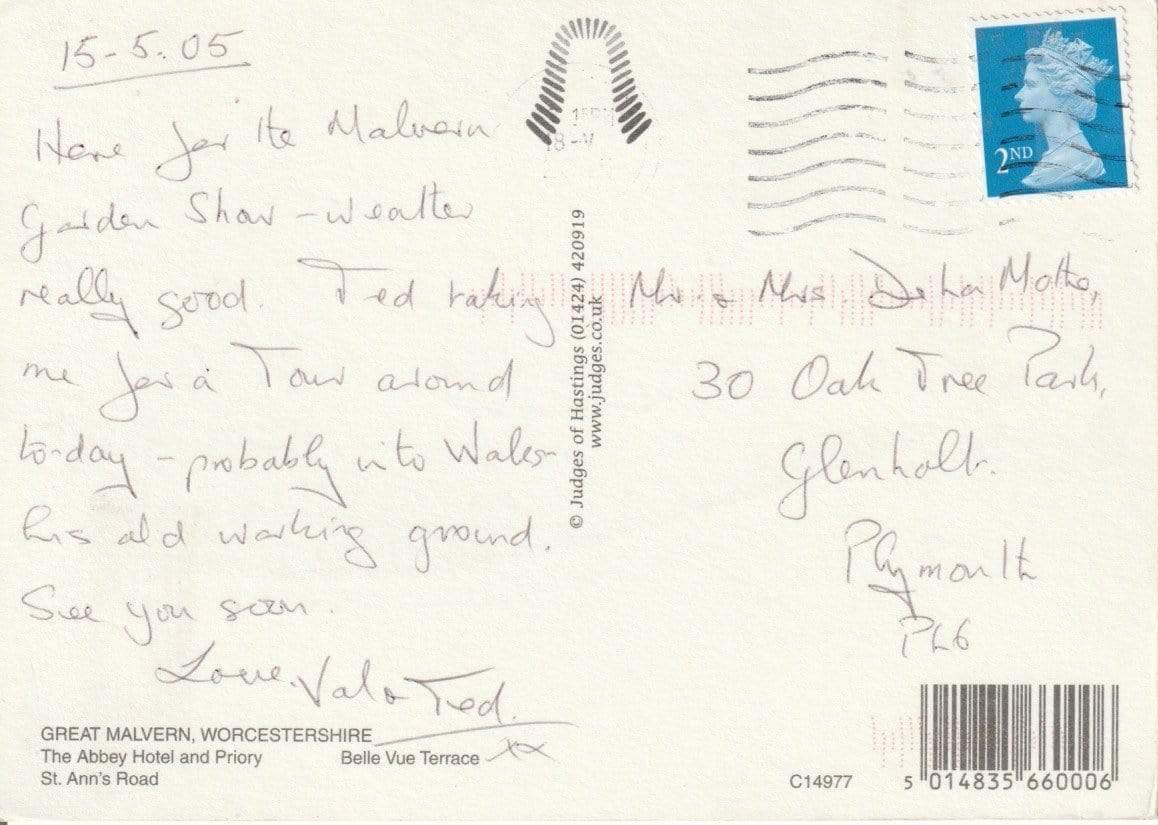 15-5.05
Here for the Malvern
Garden Show - weather
really good. Ted taking
me for a Tour around
to-day - probably into Wales -
his old working ground.
See you soon.
Love, Val & Ted.
xx
GREAT MALVERN, WORCESTERSHIRE
The Abbey Hotel and Priory Belle Vue Terrace
St. Ann's Road
© Judges of Hastings (01424) 420919
www.judges.co.uk
2ND
Mr. & Mrs. De La Motte,
30 Oak Tree Park,
Glenholt.
Plymouth
PL6
C14977
5 014835 660006